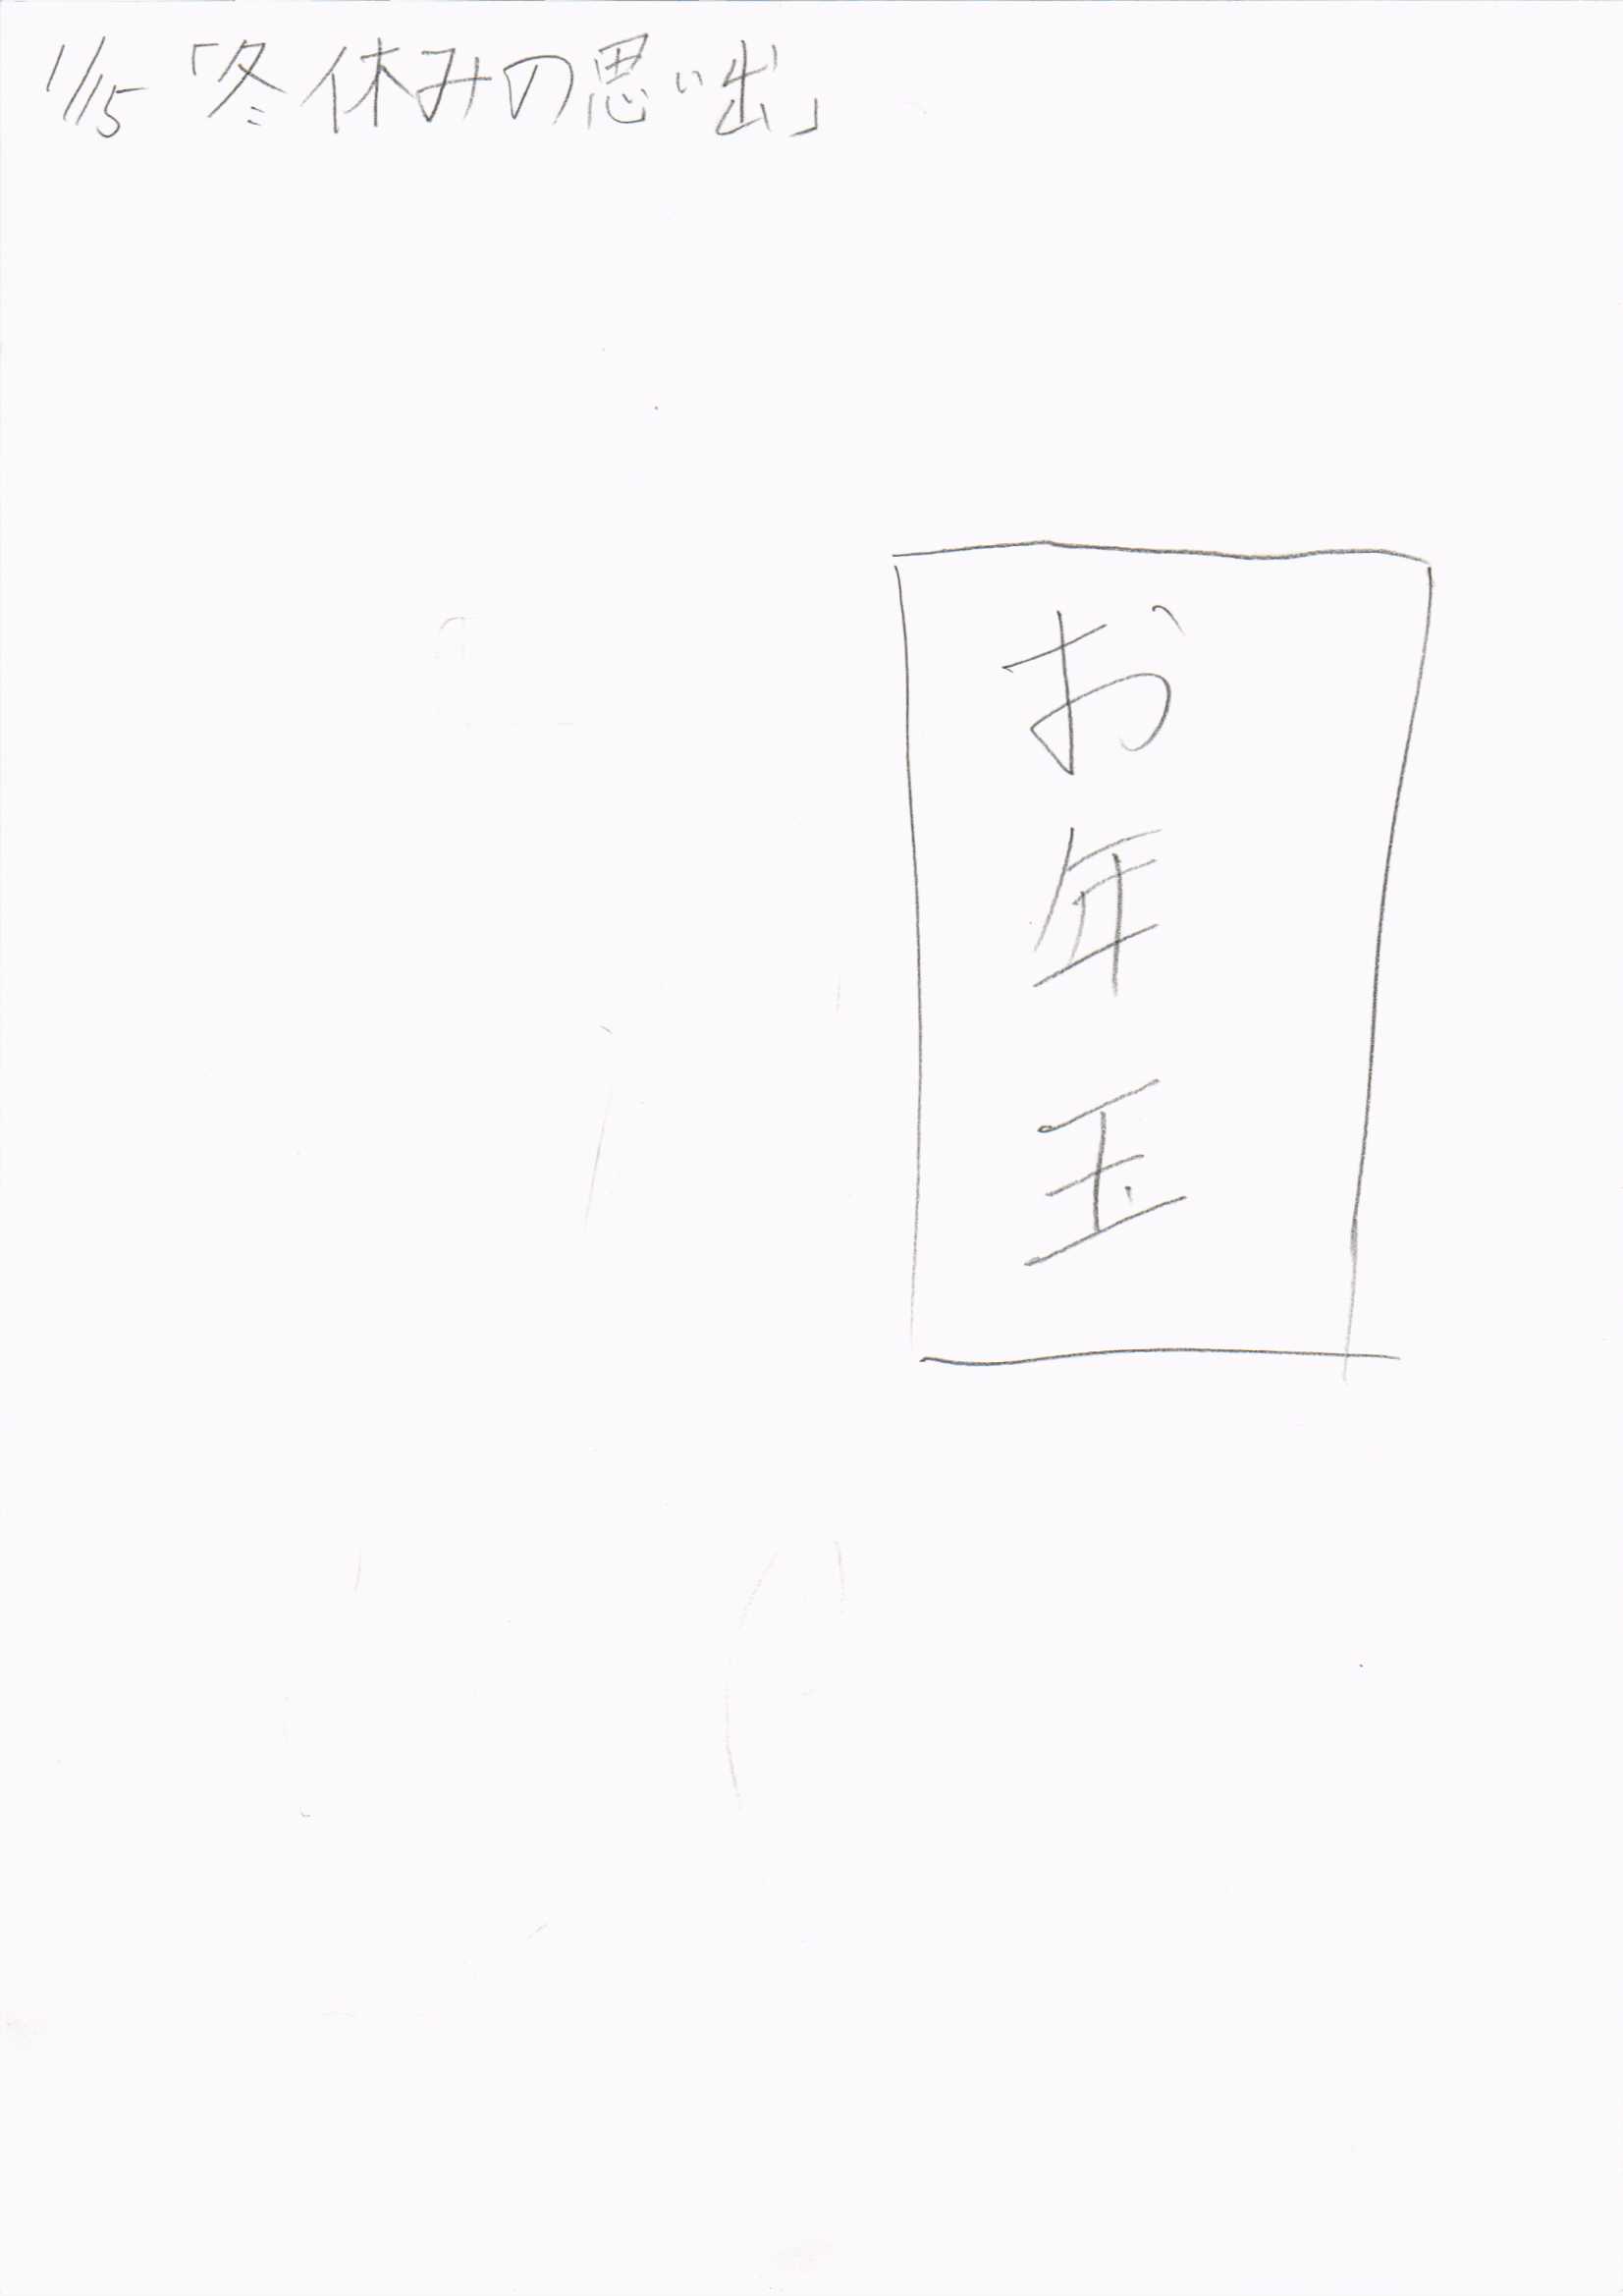 1/15「冬休みの思い出」
お年玉